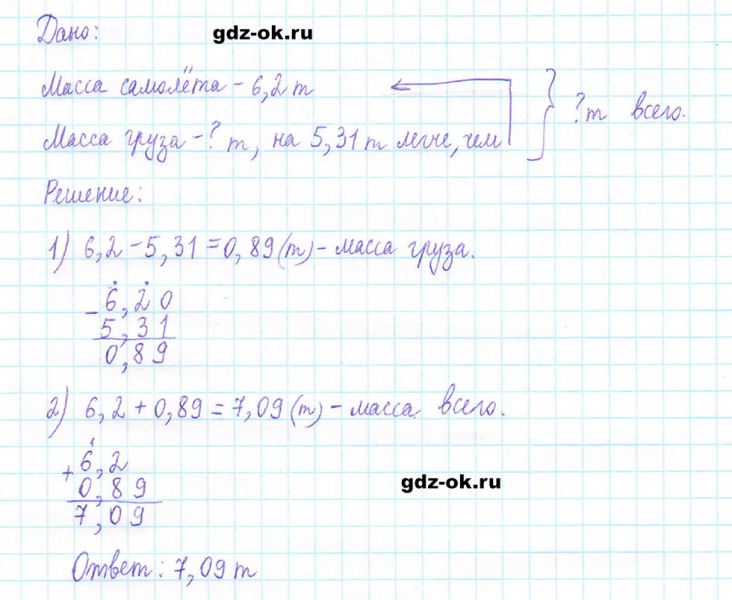 Дано:
gdz-ok.ru
Масса самолёта - 6,2 т
Масса груза - ? т, на 5,31 т легче, чем
? т всего.
Решение:
1) 6,2 - 5,31 = 0,89 (т) - масса груза.
- 6,20
5,31
0,89
2) 6,2 + 0,89 = 7,09 (т) - масса всего.
+ 6,2
0,89
7,09
gdz-ok.ru
Ответ: 7,09 т